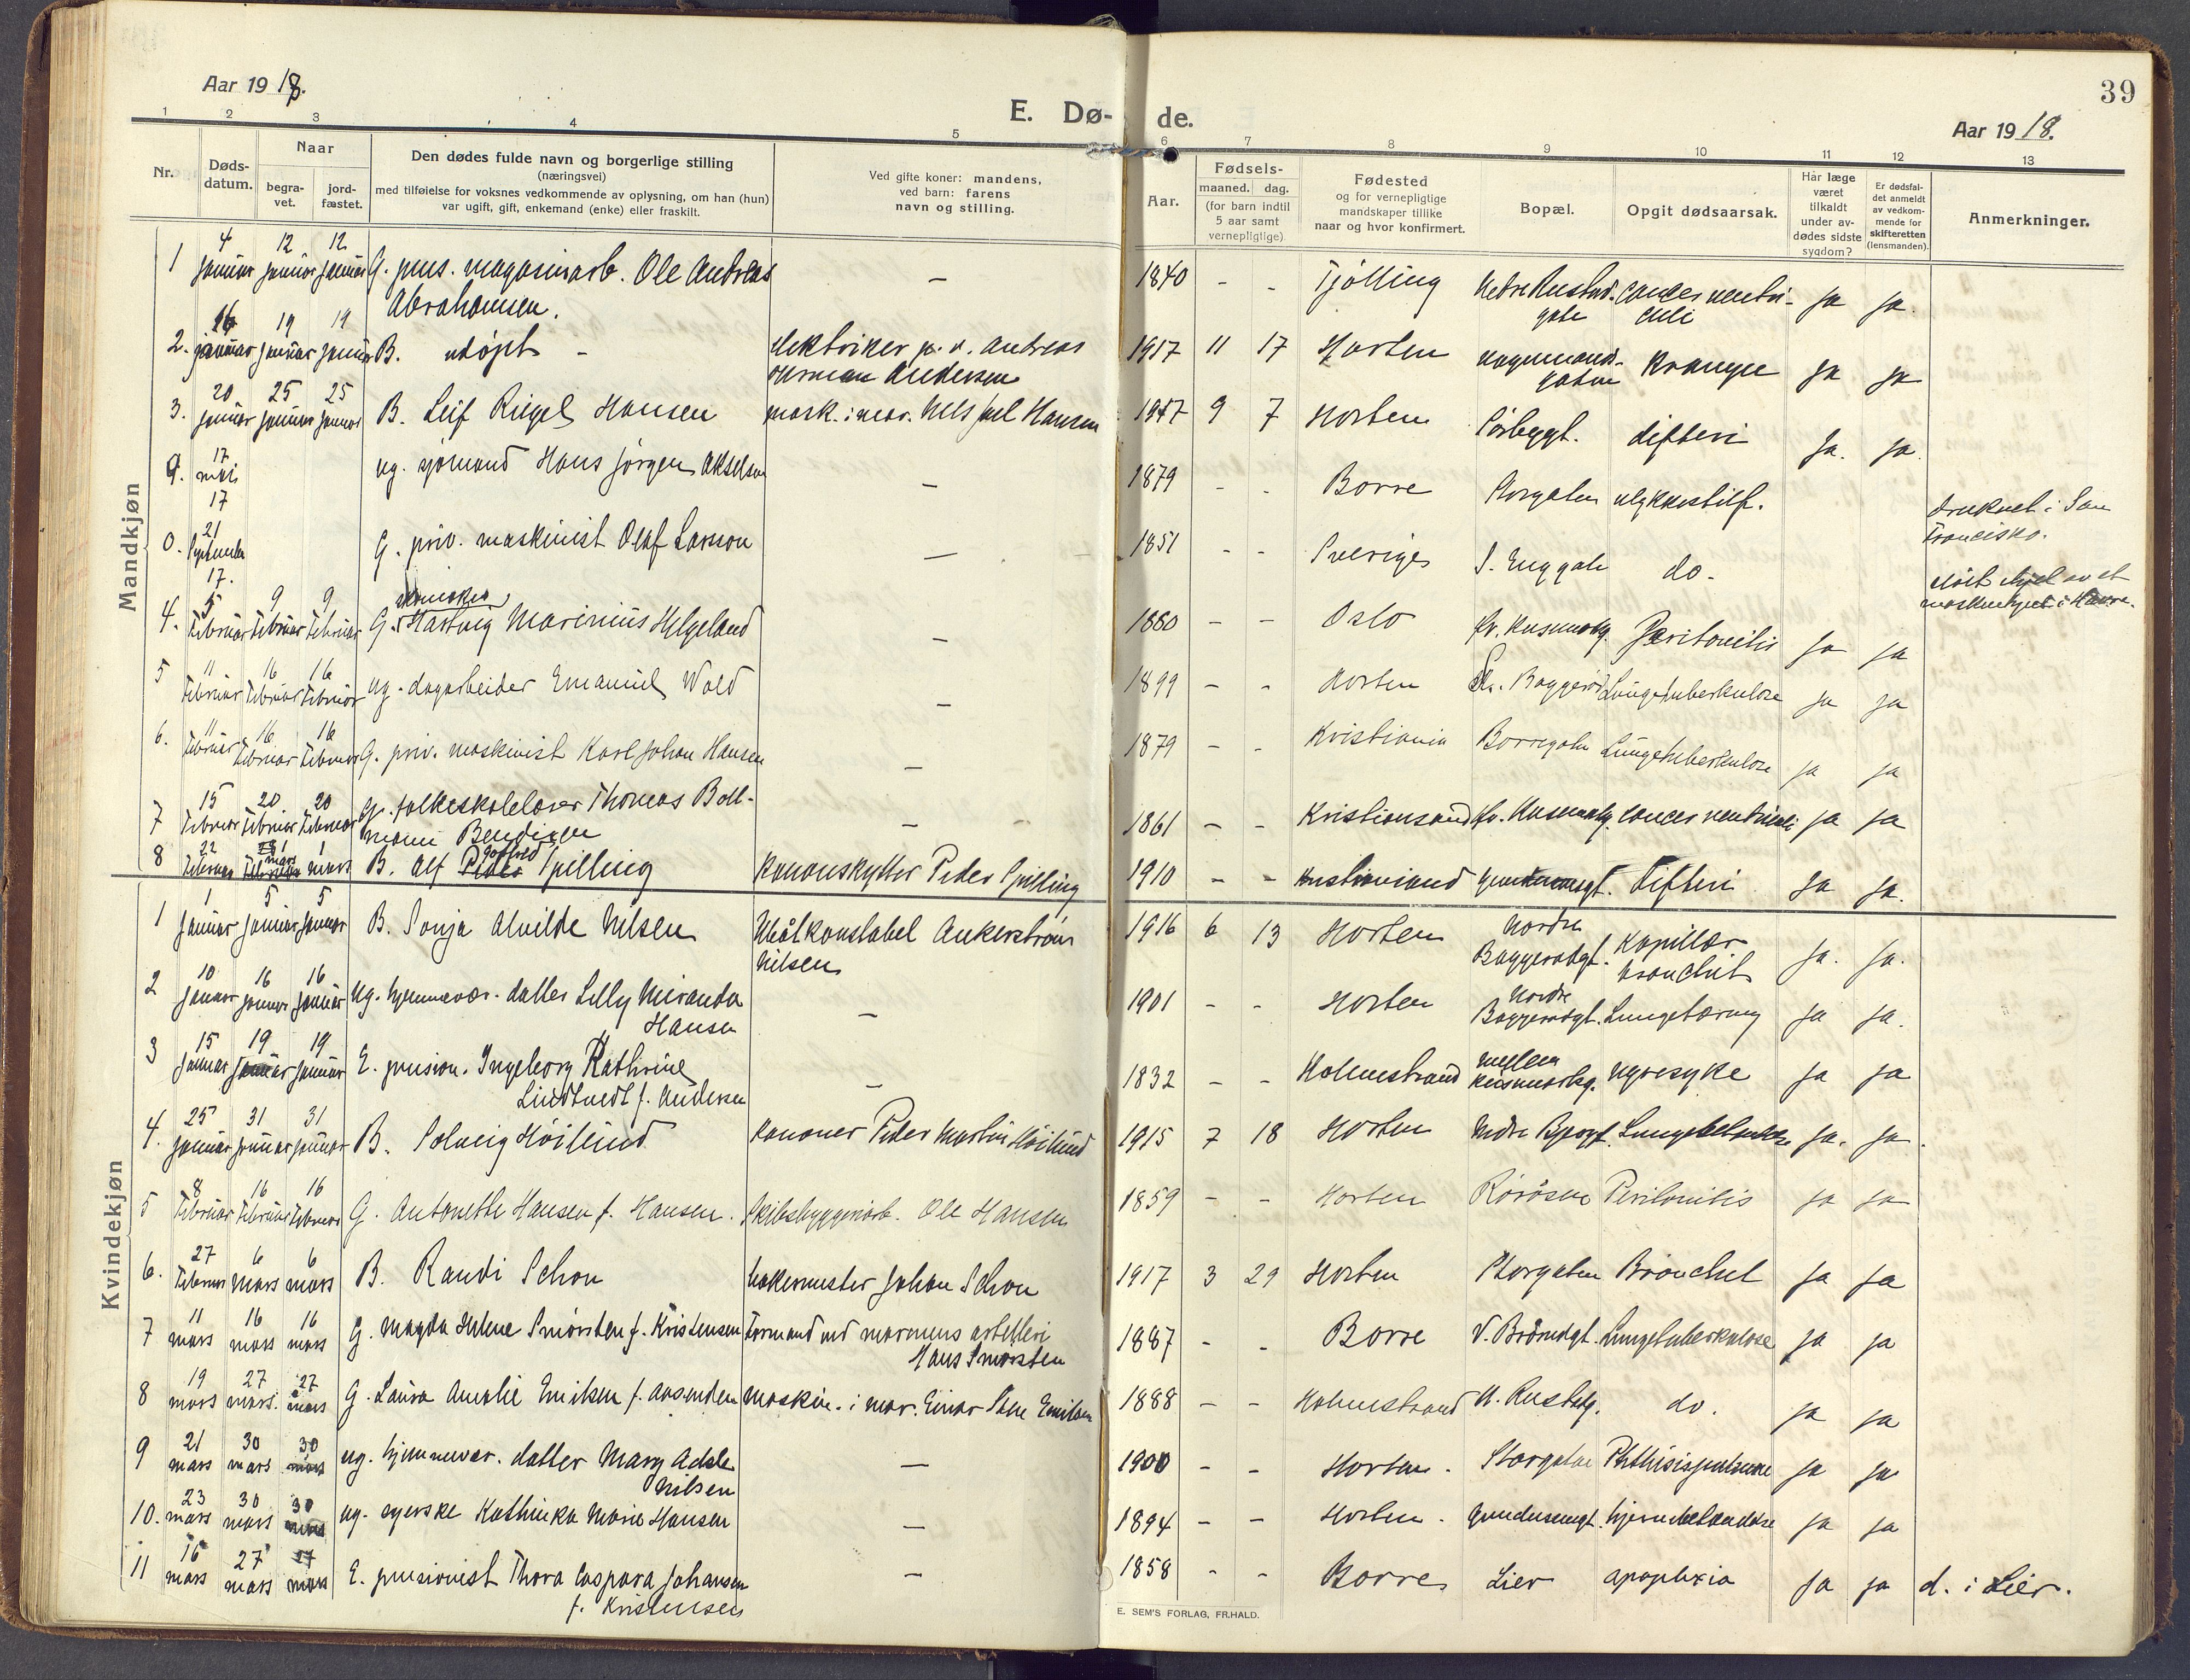 Aar 1918.
E. Dø-
de.
39
Aar 1918.
1 2 3 4 5 6 7 8 9 10 11 12 13
Nr.
Døds-
datum.
Naar
begra-
vet.
jord-
fæstet.
Den dødes fulde navn og borgerlige stilling
(næringsvei)
med tilføielse for voksnes vedkommende av oplysning, om han (hun)
var ugift, gift, enkemand (enke) eller fraskilt.
Ved gifte koner: mandens,
ved barn: farens
navn og stilling.
Aar.
Fødsels-
maaned. dag.
(for barn indtil
5 aar samt
vernepligtige).
Fødested
og for vernepligtige
mandskaper tillike
naar og hvor konfirmert.
Bopæl.
Opgit dødsaarsak.
Har læge
været
tilkaldt
under av-
dødes sidste
sygdom?
Er dødsfal-
det anmeldt
av vedkom-
mende for
skifteretten
(lensmanden).
Anmerkninger.
Mandkjøn
1 4 januar 12 januar 12 januar G. pens. magasinarb. Ole Andreas
Abrahamsen. — 1840 - - Tjölling Nedre Rustad- cancer ventri-
gate culi ja ja.
2. 16 januar 19 januar 19 januar B. udöpt - elektriker p. v. Andreas
Herman Andersen 1917 11 17 Horten gaten Krampe ja ja
3. 20 januar 25 januar 25 januar B. Leif Riegel Hansen mask. i mar. Nils Hansen 1917 9 7 Horten Sörbygt. difteri ja. ja.
9. 17 mai 17 ug. sjömand Hans Jörgen Akselsen — 1879 - - Borre Storgaten ulykkestilf. druknet i San
Francisko.
0. 21 September 17. G. priv. maskinist Olaf Larsson — 1851 - - Sveriges S. Enggate do.
4. 5 Februar 9 Februar 9 Februar G. Hartvig Marinius Helgeland — 1880 - - Oslo Peritonitis ja ja
5 11 Februar 16 Februar 16 Februar ug. dagarbeider Emanuel Wold — 1899 - - Horten Lungetuberkulose ja ja
6. 11 Februar 16 Februar 16 Februar G. priv. maskinist Karl Johan Hansen — 1879 - - Kristiania Borregaten Lungetuberkulose ja ja
7 15 Februar 20. Februar 20 Februar G. folkeskolelærer Thomas Boll-
mann Bendixen — 1861 - - Kristiansand cancer ventriculi ja ja
8 22 Februar 1 mars 1 mars B. Alf Gotfred Spilling Kanonskytter Peder Spilling 1910 - - Difteri ja ja.
Kvindekjøn
1 1 januar 5 januar 5 januar B. Sonja Alvilde Nilsen Ubåtkonstabel Ankerström
Nilsen 1916 6 13 Horten Nordre
Baggerødgt. Kapillær
bronchit ja. ja.
2 10 januar 16 januar 16 januar ug. hjemmevær. datter Lilly Miranda
Hansen — 1901 - - Horten Nordre
Baggerødgt. Lungetæring ja ja.
3 15 januar 19 januar 19 januar E. pension. Ingeborg Kathrine
Lindtvedt f. Andersen — 1832 - - Holmestrand Mellem
Keisemarksg. Nyresyke ja ja
4. 25 januar 31 januar 31 januar B. Solveig Höilund Kanoner Peder Martin Höilund 1915 7 18 Horten ja. ja.
5 8 Februar 16 Februar 16 Februar G. Antonette Hansen f. Hansen. skibsbyggerarb. Ole Hansen 1859 - - Horten Rörösen Peritonitis ja ja
6. 27 Februar 6 mars 6 mars B. Randi Schou bakermester Johan Schou 1917 3 29 Horten Storgaten Bronchit ja ja
7 11 mars 16 mars 16 mars G. Magda Helene Smörsten f. Kristensen Formand ved marinens artelleri
Hans Smörsten 1887 - - Borre V. Bröndgt. Lungetuberkulose ja ja
8 19 mars 27 mars. 27 mars G. Laura Amalie Emilsen f. Aasenden maskin. i mar. Einar Emilsen 1888 - - Holmestrand N. Rustadg. do. ja ja
9 21 mars 30 mars 30 mars ug. hjemmevær. datter Mary Adele
Nilsen — 1900 - - Horten. Storgaten Phthisis pulmon. ja ja
10. 23 mars 30 mars 30 mars ug. syerske Kathinka Marie Hansen — 1894 - - Horten. hjernebetændelse ja ja
11 16 mars 27 mars 27 mars E. pensionist Thora Caspara Johansen
f. Kristensen — 1858 - - Borre Lier apoplexia ja ja d. i Lier.
E. SEM'S FORLAG, FR.HALD.